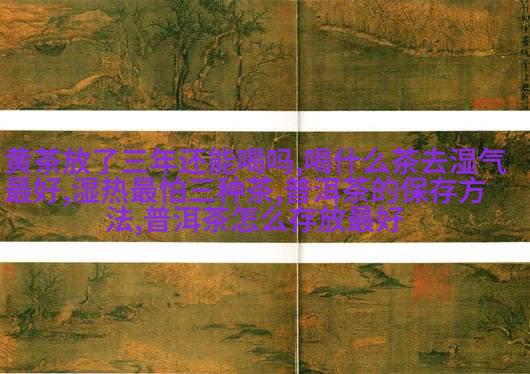 黄茶放了三年还能喝吗,喝什么茶去湿气
最好,湿热最怕三种茶,普洱茶的保存方
法,普洱茶怎么存放最好